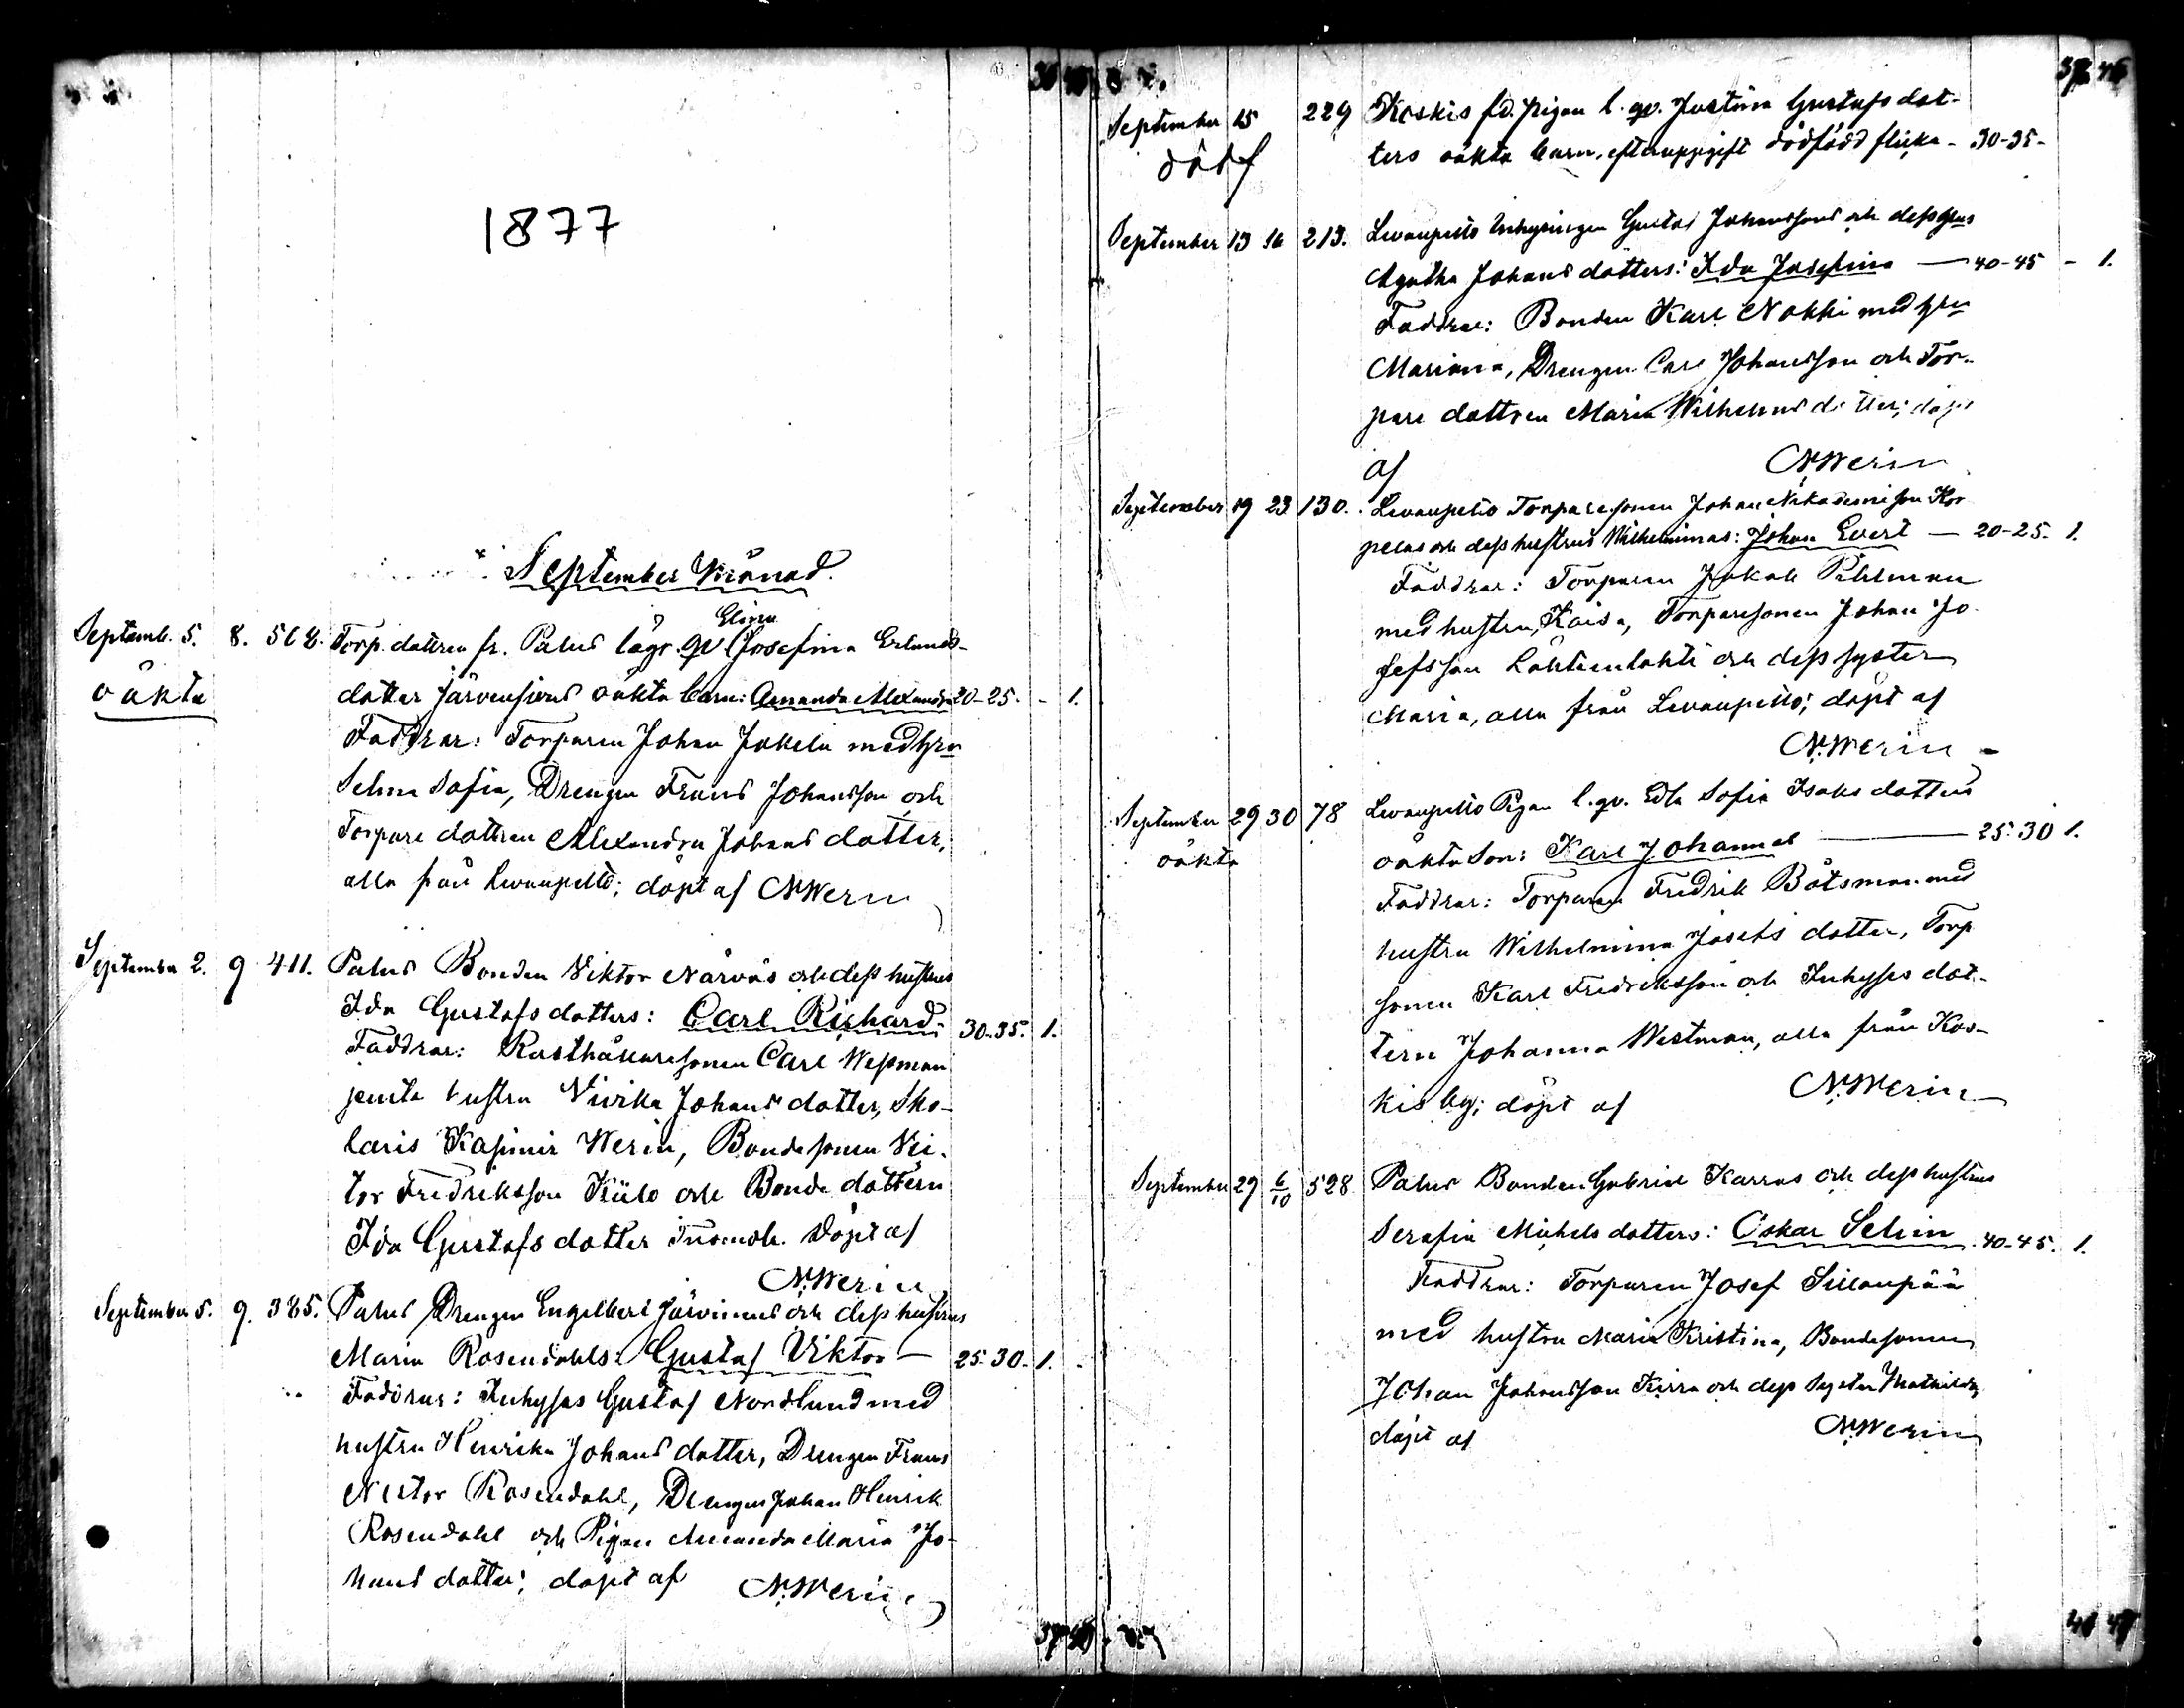 1877
September Månad.
Septemb. 5. 8. 568. Torp. dottren fr. Palus lägr. qv. Elina Josefina Erlands-
oäkta dotter Järvensivus oäkta barn: Amanda Alexandra 20-25. - 1.
Faddrar: Torparen Johan Jakela med hru
Selma Sofia, Drengen Frans Johansson och
Torpare dottren Alexandra Johans dotter,
alla från Levanpelto; döpt af N. Werin
September 2. 9 411. Palus Bonden Viktor Närväs och dess hustrus
Ida Gustafs dotters: Carl Richard. 30-35. 1.
Faddrar: Rusthållaresonen Carl Wessman
jemte hustru Vivika Johans dotter, Sko-
laris Kasimir Werin, Bondesonen Vik-
tor Fredriksson Kiilo och Bonde dottern
Ida Gustafs dotter Döpt af
N. Werin
September 5. 9. 385. Palus Drengen Engelbert Järvinens och dess hustrus
Maria Rosendahls: Gustaf Viktor — 25-30- 1.
Faddrar: Inhyses Gustaf Nordlund med
hustru Henrika Johans dotter, Drengen Frans
Nestor Rosendahl, Drengen Johan Henrik
Rosendahl och Pigan Amanda Maria Jo-
hans dotter; döpt af N. Werin
September 15 229 Koskis fd. pigan l. qv. Justina Gustafs dot-
dödf ters oäkta barn, efter uppgift dödfödd flicka - 30-35-
September 13 16 213. Levanpelto Inhysingen Gustaf Johanssons och dess hrus
Agatha Johans dotters: Ida Josefina — 40-45 - 1.
Faddrar: Bonden Karl Nokki med hru
Mariana, Drengen Carl Johansson och Tor-
pare dottren Maria Wilhelms dotter; döpt
af N. Werin
September 19 23 130. Levanpelto Torparesonen Johan Nikodemisson Kor
pelas och dess hustrus Wilhelminas: Johan Evert — 20-25. 1.
Faddrar: Torparen Jakob Pihlman
med hustru, Kaisa, Torparesonen Johan Jo-
sefsson Lähteenlahti och dess syster
Maria, alla från Levanpelto; döpt af
N. Werin -
September 29 30 78 Levanpelto Pigan l. qv. Edla Sofia Isaks dotters
oäkta oäkta Son: Karl Johannes — 25-30 1.
Faddrar: Torparen Fredrik Båtsman med
hustru Wilhelmina Josefs dotter, Torp
sonen Karl Fredriksson och Inhyses dot-
tern Johanna Westman, alla från Kos-
kis by; döpt af N. Werin
September 29 6/10 528 Palus Bonden Gabriel Karras och dess hustrus
Serafia Michels dotters: Oskar Selim 40-45. 1.
Faddrar: Torparen Josef Sillanpää
med hustru Maria Kristina, Bondesonen
Johan Johansson Kirra och dess Syster Mathilda,
döpt af N. Werin